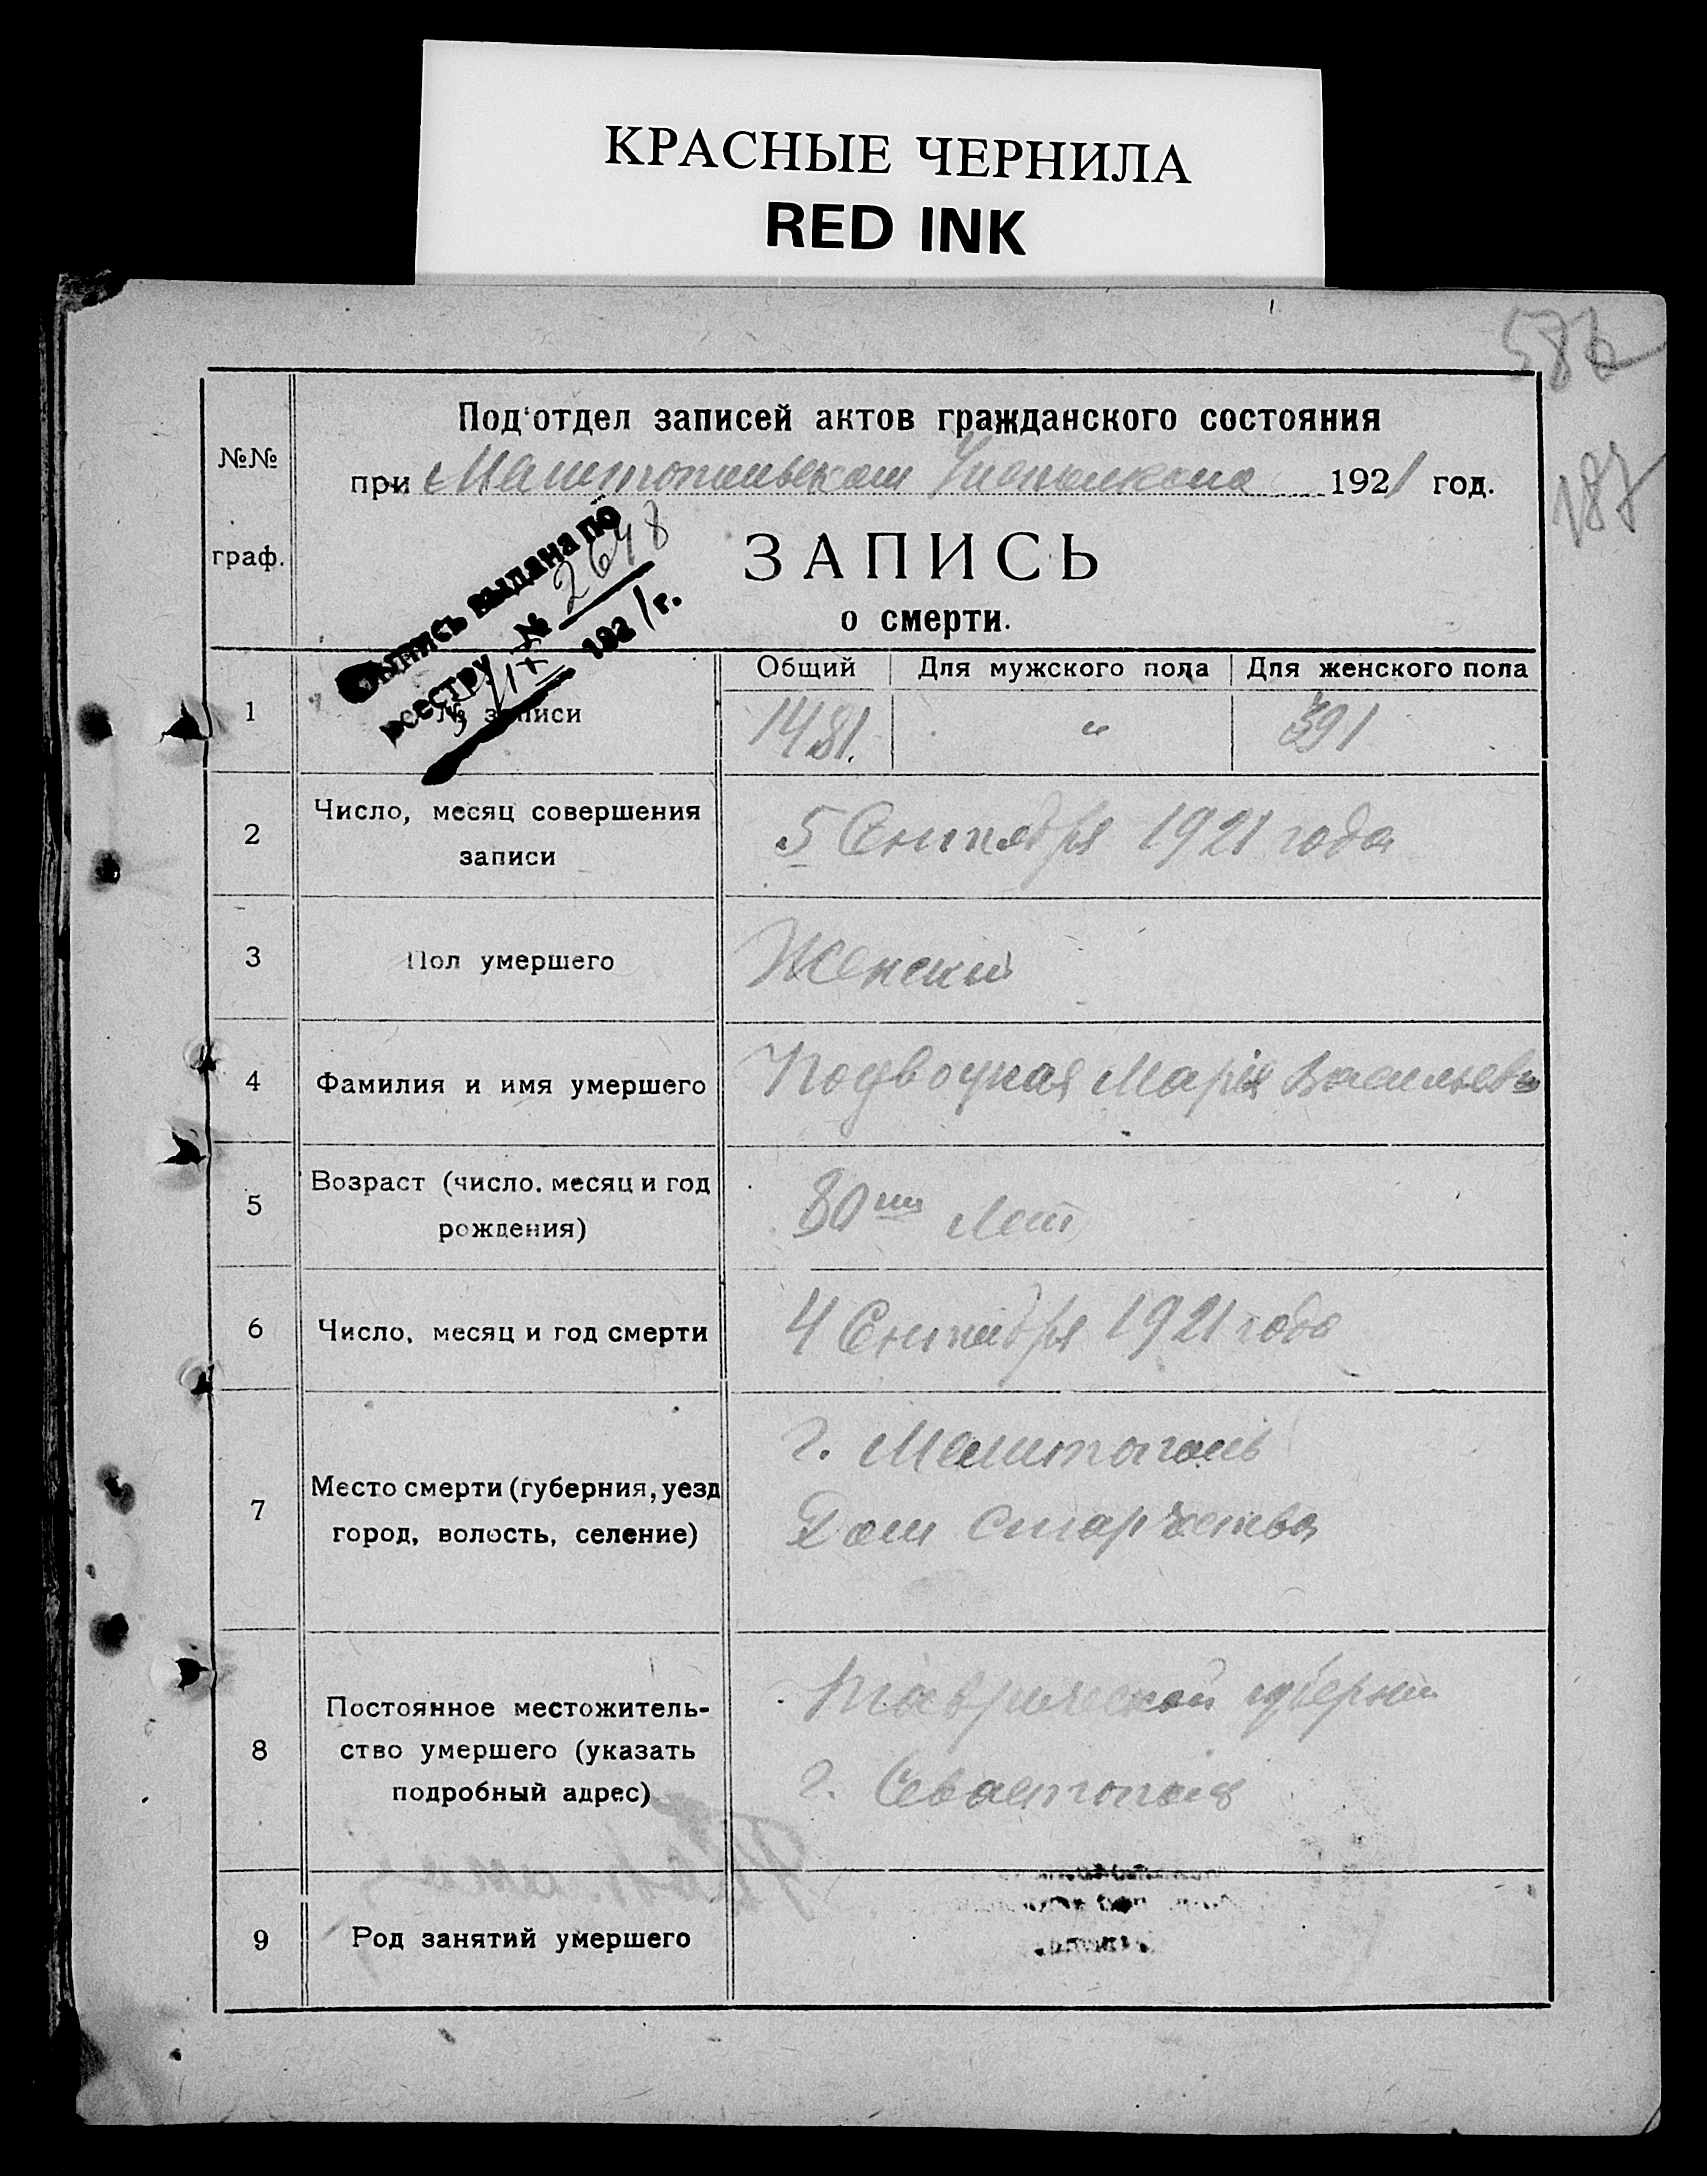 КРАСНЫЕ ЧЕРНИЛА
RED INK
586
187
Под'отдел записей актов гражданского состояния
при Мелитопольском 1921 год.
№№
граф.
ЗАПИСЬ
о смерти.
Выпись выдана по
реестру № 2648
5/IX 1921 г.
Общий Для мужского пола Для женского пола
1 № записи 1481. " 391
2 Число, месяц совершения
записи
5 Сентября 1921 года
3 Пол умершего Женский
4 Фамилия и имя умершего Марія Васильевна
5 Возраст (число, месяц и год
рождения)
80ти лет
6 Число, месяц и год смерти 4 Сентября 1921 года
7 Место смерти (губерния, уезд
город, волость, селение)
г. Мелитополь
Дом старчества
8 Постоянное местожитель-
ство умершего (указать
подробный адрес)
Таврической губернии
г. Севастополь
9 Род занятий умершего